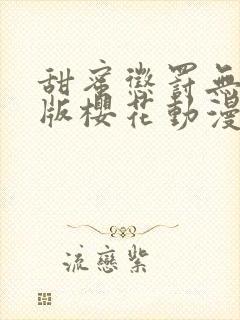 甜蜜懲罰無
版櫻花動漫
流戀紫